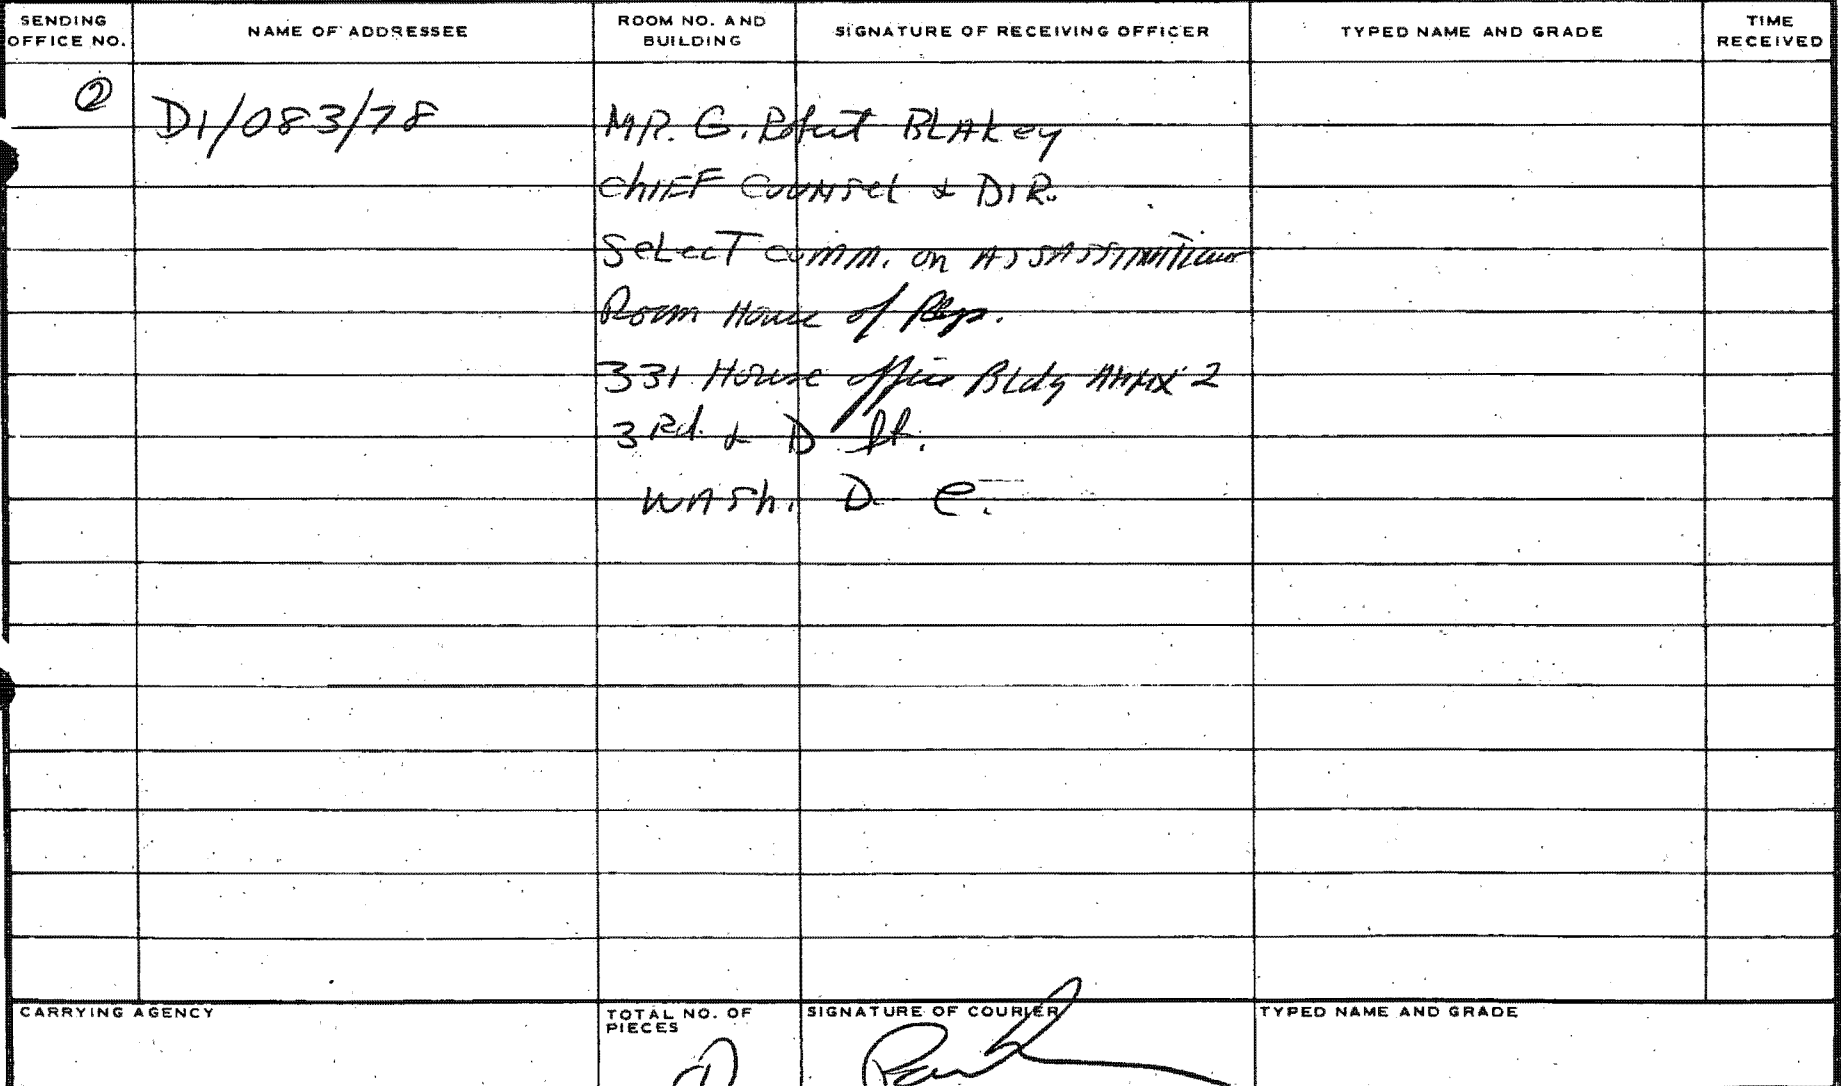 SENDING OFFICE NO.
NAME OF ADDRESSEE
ROOM NO. AND BUILDING
SIGNATURE OF RECEIVING OFFICER
TYPED NAME AND GRADE
TIME RECEIVED
② DI/083/78
MR. G. Robert BLAKEY
CHIEF COUNSEL & DIR.
SELECT COMM. ON ASSASSINATIONS
Room House of Reps.
331 House office Bldg ANNX 2
3 Rd. & D St.
WASH. D C.
CARRYING AGENCY
TOTAL NO. OF PIECES
SIGNATURE OF COURIER
TYPED NAME AND GRADE